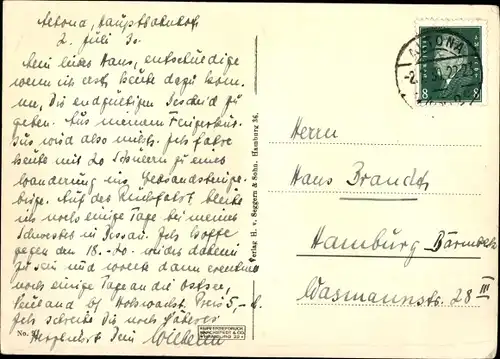 Altona, Hauptbahnhof
2. Juli 30.
Mein lieber Hans, entschuldige
wenn ich erst heute dazu kom-
me, Dir endgültigen Bescheid zu
geben. Aus meinem
wird also nichts. Ich fahre
heute mit 20 Schülern zu einer
Wanderung ins
Auf der Rückfahrt bleibe
ich noch einige Tage bei meiner
Schwester in Dessau. Ich hoffe
gegen den 18.-20. wieder daheim
zu sein und werde dann eventuell
noch einige Tage an die Ostsee,
Preis 5,-
Ich schreibe Dir noch
Herzlichst Dein Wilhelm
No.
Verlag H. v. Seggern & Sohn. Hamburg 36.
KUPFERTIEFDRUCK
ALTONA
8 8
Herrn
Hans Brandt
Hamburg Barmbeck
Wasmannstr. 28 III